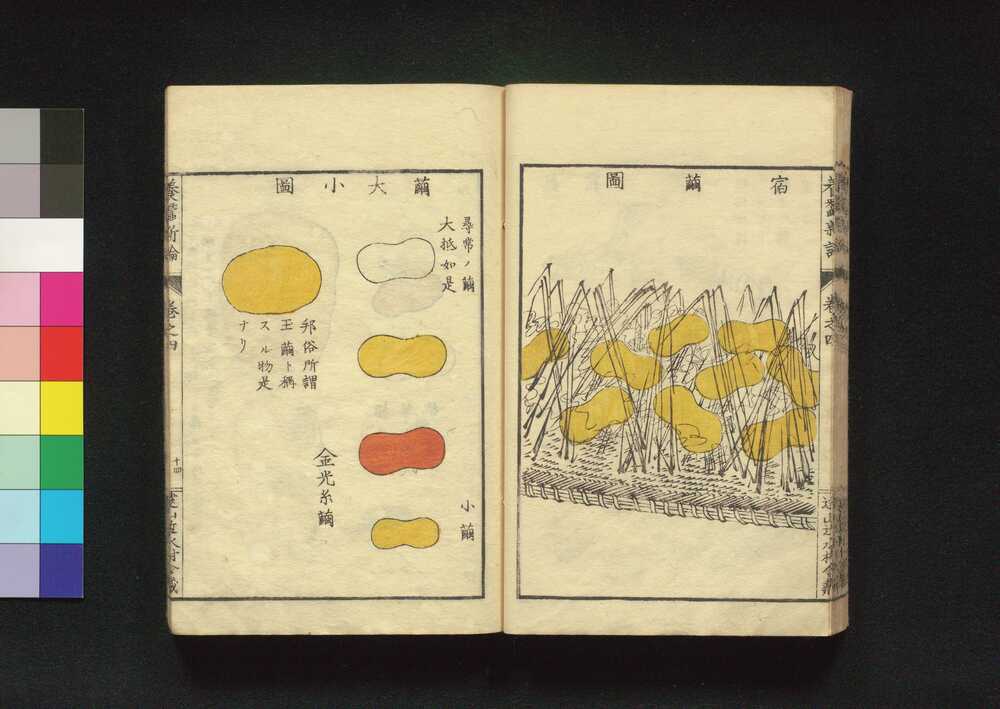 宿繭圖
繭大小圖
尋常ノ繭
大抵如是
小繭
邦俗所謂
玉繭ト稱
スル物是
ナリ
金光糸繭
養蚕新論
卷之四
十四